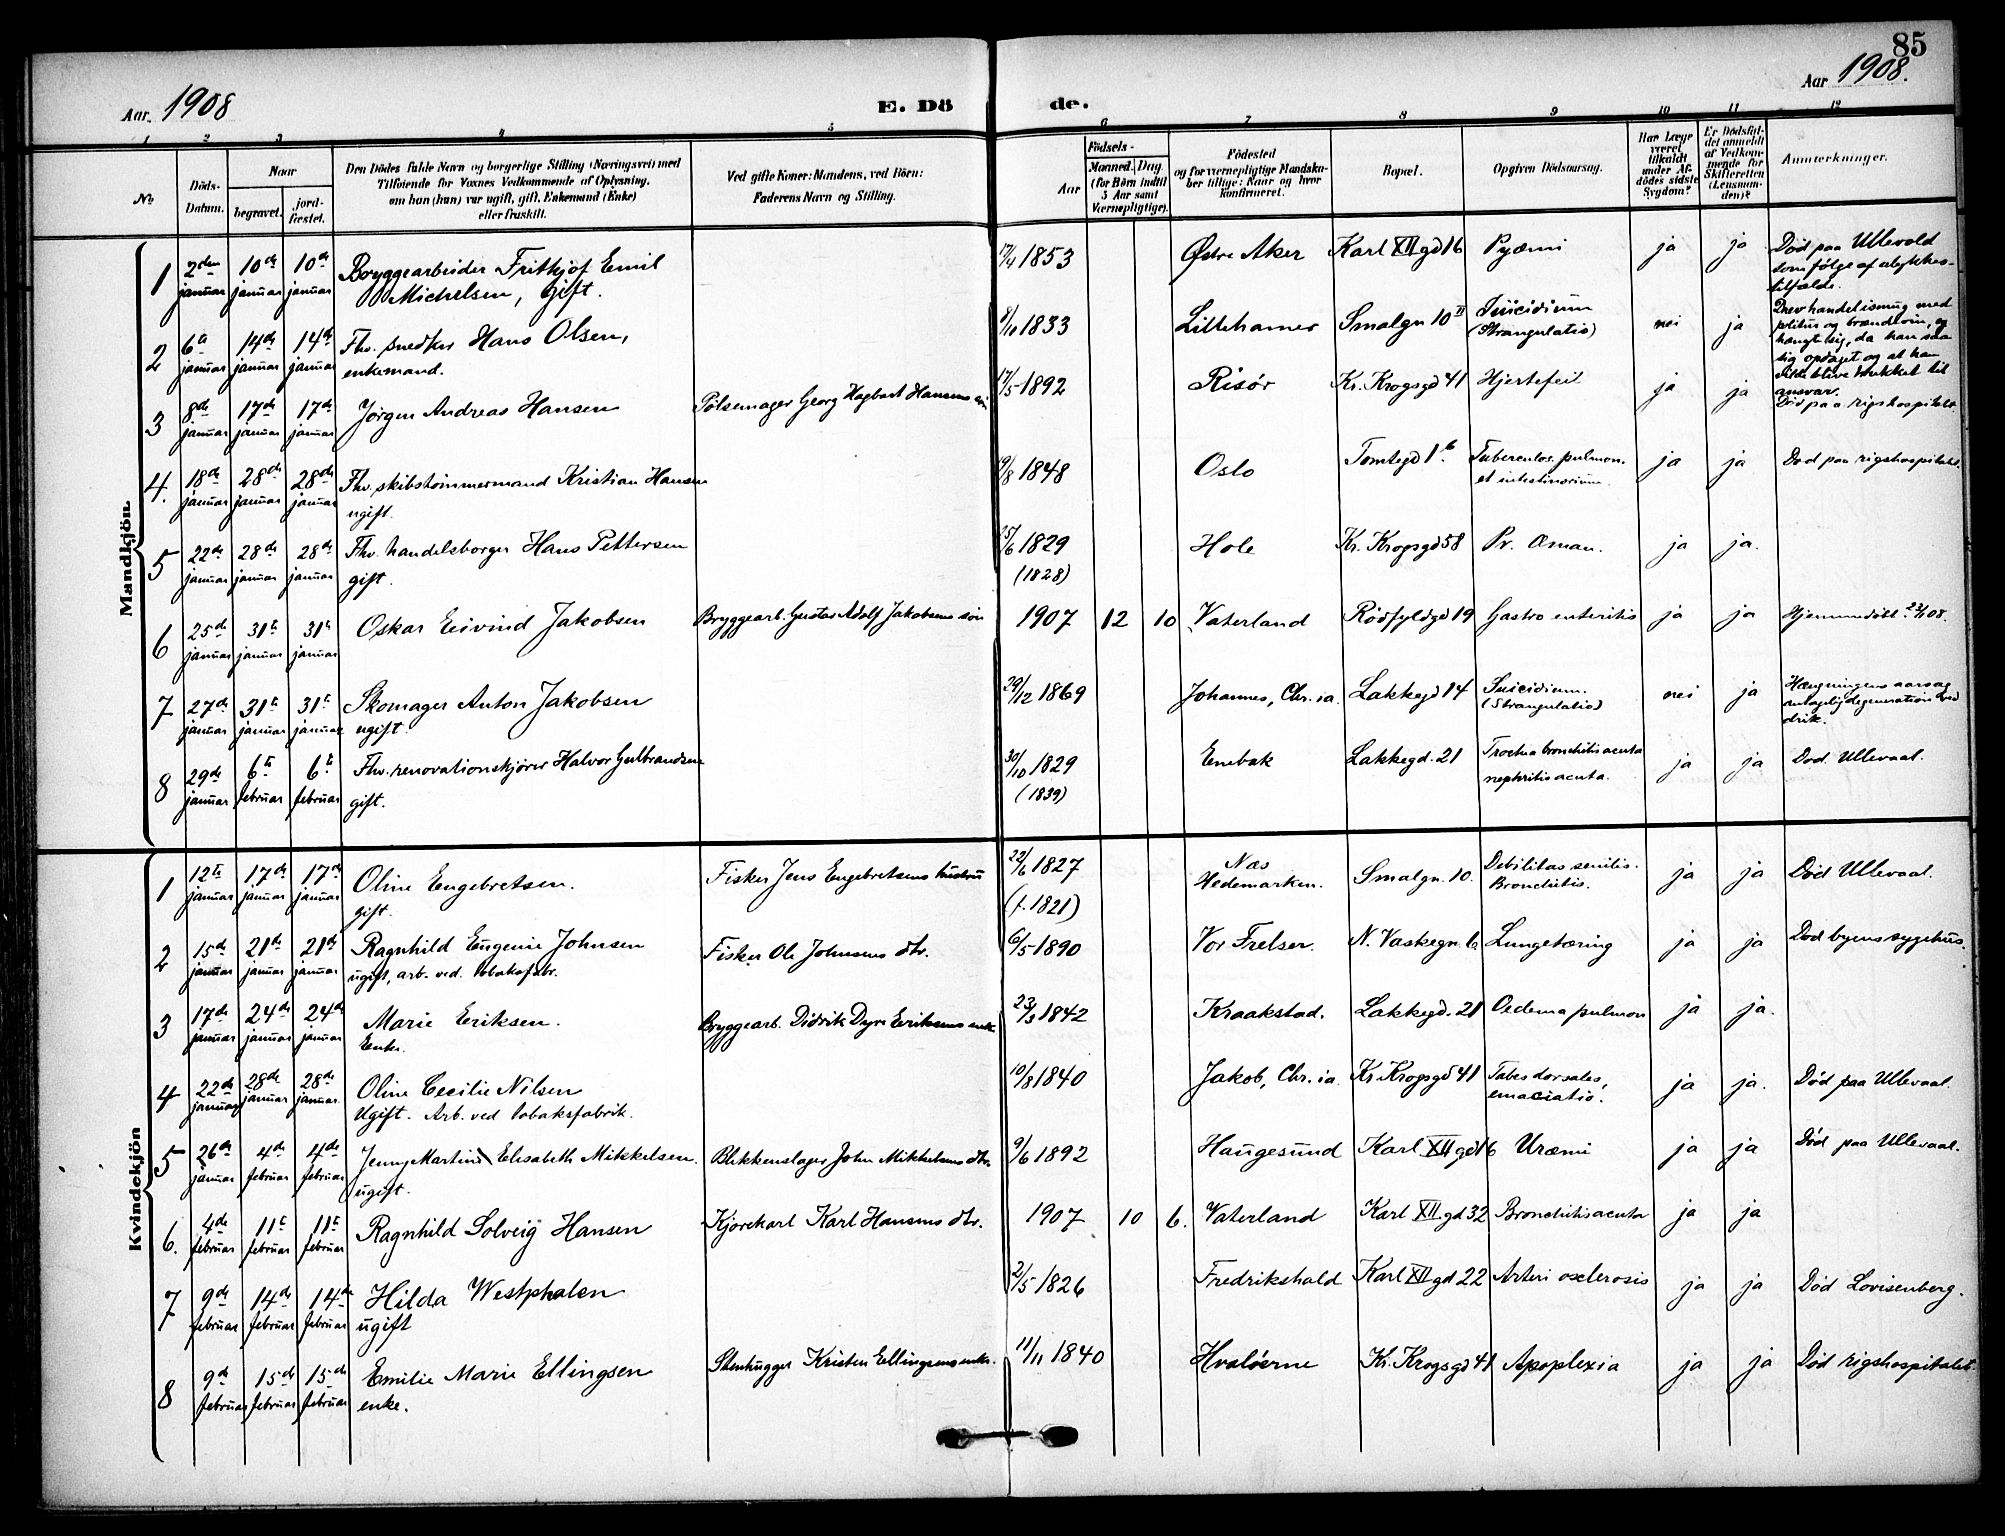 85
Aar 1908
E. Dö
de.
Aar 1908.
1 2 3 4 5 6 7 8 9 10 11 12
No
Döds-Datum.
Naar
begravet.
jord-fæstet.
Den Dödes fulde Navn og borgerlige Stilling (Næringsvei) med
Tilföiende for Voxnes Vedkommende af Oplysning,
om han (hun) var ugift, gift, Enkemand (Enke)
eller fraskilt.
Ved gifte Koner: Mandens, ved Börn:
Faderens Navn og Stilling.
Födsels-
Aar
Maaned. Dag.
(for Börn indtil
5 Aar samt
Værnepligtige).
Födested
og for værnepligtige Mandskaber tillige: Naar og hvor
konfirmeret.
Bopæl.
Opgiven Dödsaarsag.
Har Læge
været
tilkaldt
under Afdödes sidste
Sygdom?
Er Dödsfaldet anmeldt
af Vedkommende for
Skifteretten
(Lensmanden)?
Anmærkninger.
Mandkjön.
1 2den januar 10de januar 10de januar Bryggearbeider Fritkjof Emil Michelsen, gift. 17/4 1853 Østre Aker Karl XII gd 16 Pyæmi ja ja Död paa Ullevold som följe af ulykkestilfælde.
2 6te januar 14de januar 14de januar Fhv. snedker Hans Olsen, enkemand. 8/10 1833 Lillehamer Smalgn 10 II Suicidium (Strangulatio) nei ja Drev handel ismug med politur og brændevin, og hængte sig, da han saa sig opdaget og at han vilde blive trukket til ansvar.
3 8de januar 17de januar 17de januar Jörgen Andreas Hansen Pölsemager Georg Hagbart Hansens sön 17/5 1892 Risör Kr. Krogsgd 41 Hjertefeil ja ja Död paa rigshospitalet.
4. 18de januar 28de januar 28de januar Fhv. skibstömmermand Kristian Hansen ugift. 19/8 1848 Oslo Tomtegd 1 b Tuberculos. pulmon. et intestinorium. ja ja Död paa rigshospitalet.
5 22de januar 28de januar 28de januar Fhv. handelsborger Hans Pettersen gift. 25/6 1829 (1828) Hole Kr. Krogsgd 58 Pr. Oman. ja ja.
6 25de januar 31te januar 31te januar Oskar Eivind Jakobsen Bryggearb. Gustav Adolf Jakobsens sön 1907 12 10 Vaterland Rödfyldgd 19 Gastro enteritis ja ja Hjemmedöbt 23/1 08.
7 27de januar 31te januar 31te januar Skomager Anton Jakobsen ugift. 29/12 1869 Johannes, Chr.ia. Lakkegd 14 Suicidium. (Strangulatio) nei ja Hængningens aarsag antagelig degeneration ved drik.
8 29de januar 6te februar 6te februar Fhv. renovationskjörer Halvor Gulbrandsen gift. 30/10 1829 (1839) Enebak Lakkegd. 21 bronchitis acuta nephritis acuta. ja ja Död Ullevaal.
Kvindekjön
1 12te januar 17de januar 17de januar Oline Engebretsen. gift. Fisker Jens Engebretsens hustru 22/6 1827 (f. 1821) Næs Hedemarken. Smalgn. 10. Debilitas senilis. Bronchitis. ja ja Död Ullevaal.
2 15de januar 21de januar 21de januar Ragnhild Eugenie Johnsen ugift, arb. ved tobaksfabr. Fisker Ole Johnsens dtr. 6/5 1890 Vor Frelser. N. Vaskegn. 6 Lungetæring ja ja Död byens sygehus.
3 17de januar 24de januar 24de januar Marie Eriksen. Enke. Bryggearb. Didrik Dyre Eriksens enke 23/3 1842 Kraakstad. Lakkegd. 21 Oedema pulmon ja ja.
4 22de januar 28de januar 28de januar Oline Cecilie Nilsen Ugift. Arb. ved tobaksfabrik. 10/8 1840 Jakob, Chr.ia. Kr. Krogsgd 41 Tabes dorsales, emaciatio. ja ja. Död paa Ullevaal.
5 26de januar 4de februar 4de februar Jenny Martine Elisabeth Mikkelsen. ugift. Blikkenslager John Mikkelsens dtr. 9/6 1892 Haugesund Karl XII gd 16 Uræmi ja ja Död paa Ullevaal.
6. 4de februar 11te februar 11te februar Ragnhild Solveig Hansen Kjörekarl Karl Hansens dtr. 1907 10 6. Vaterland Karl XII gd 32 Bronchitis acuta ja ja
7 9de februar 14de februar 14de februar Hilda Westphalen ugift 2/5 1826 Fredrikshald Karl XII gd 22 Arteri osclerosis ja ja Död Lovisenberg.
8 9de februar 15de februar 15de februar Emilie Marie Ellingsen enke. Stenhugger Kristen Ellingsens enke. 11/11 1840 Hvalöerne Kr. Krogsgd 41 Apoplexia ja ja Död rigshospitalet.